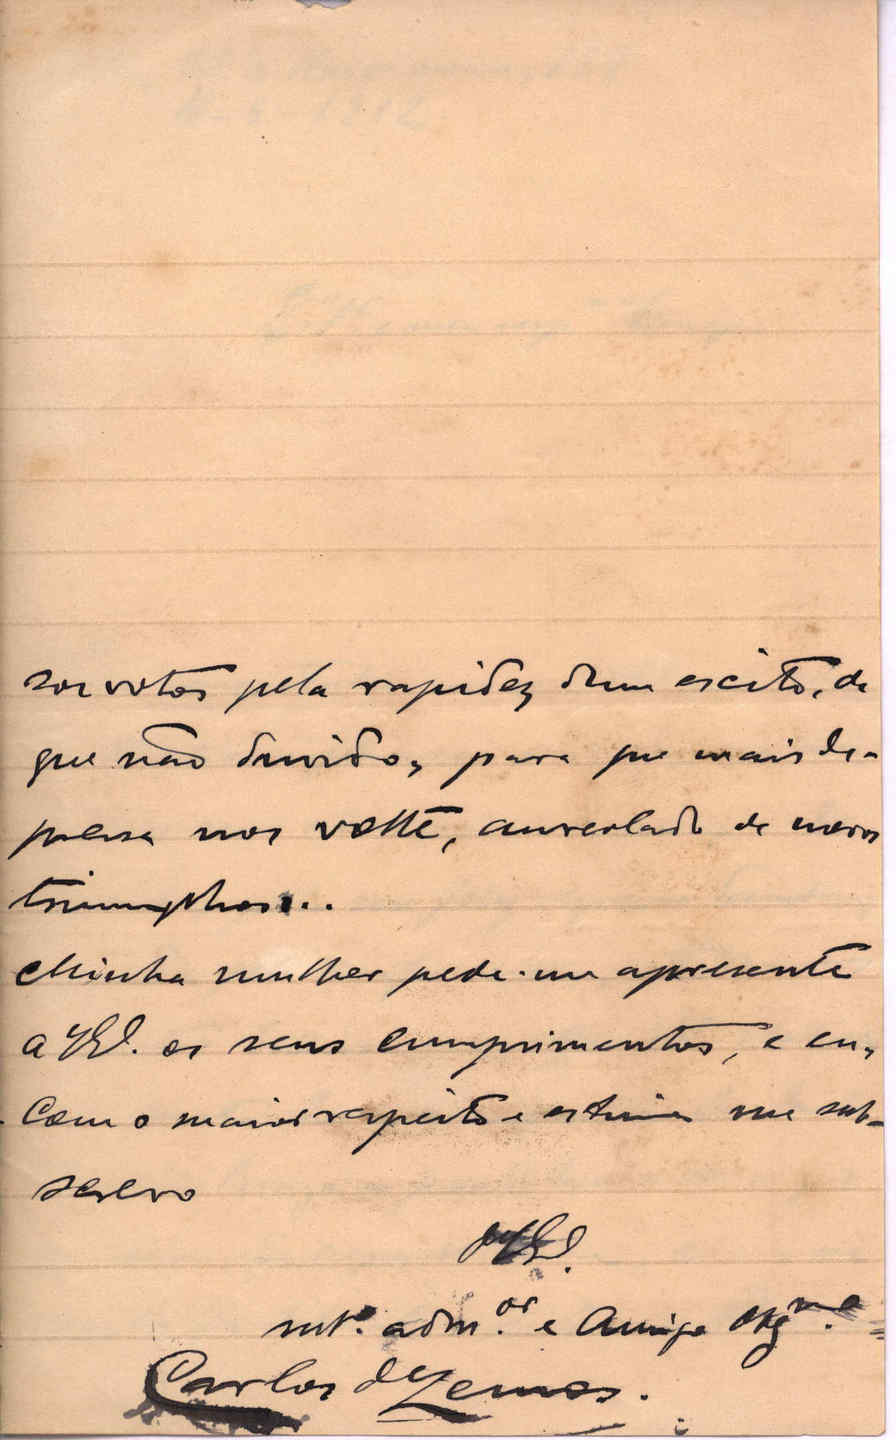 sos votos pela rapidez dum escito, de
que não duvido, para que mais de-
pressa nos volte, aureolado de novos
triumphos...
Minha mulher pede-me apresente
a V. Ex.ª os seus cumprimentos, e eu,
com o maior respeito e estima me sub-
screvo
De V. Ex.ª
mt.º adm.or e Amigo Obg.mo
Carlos de Lemos.